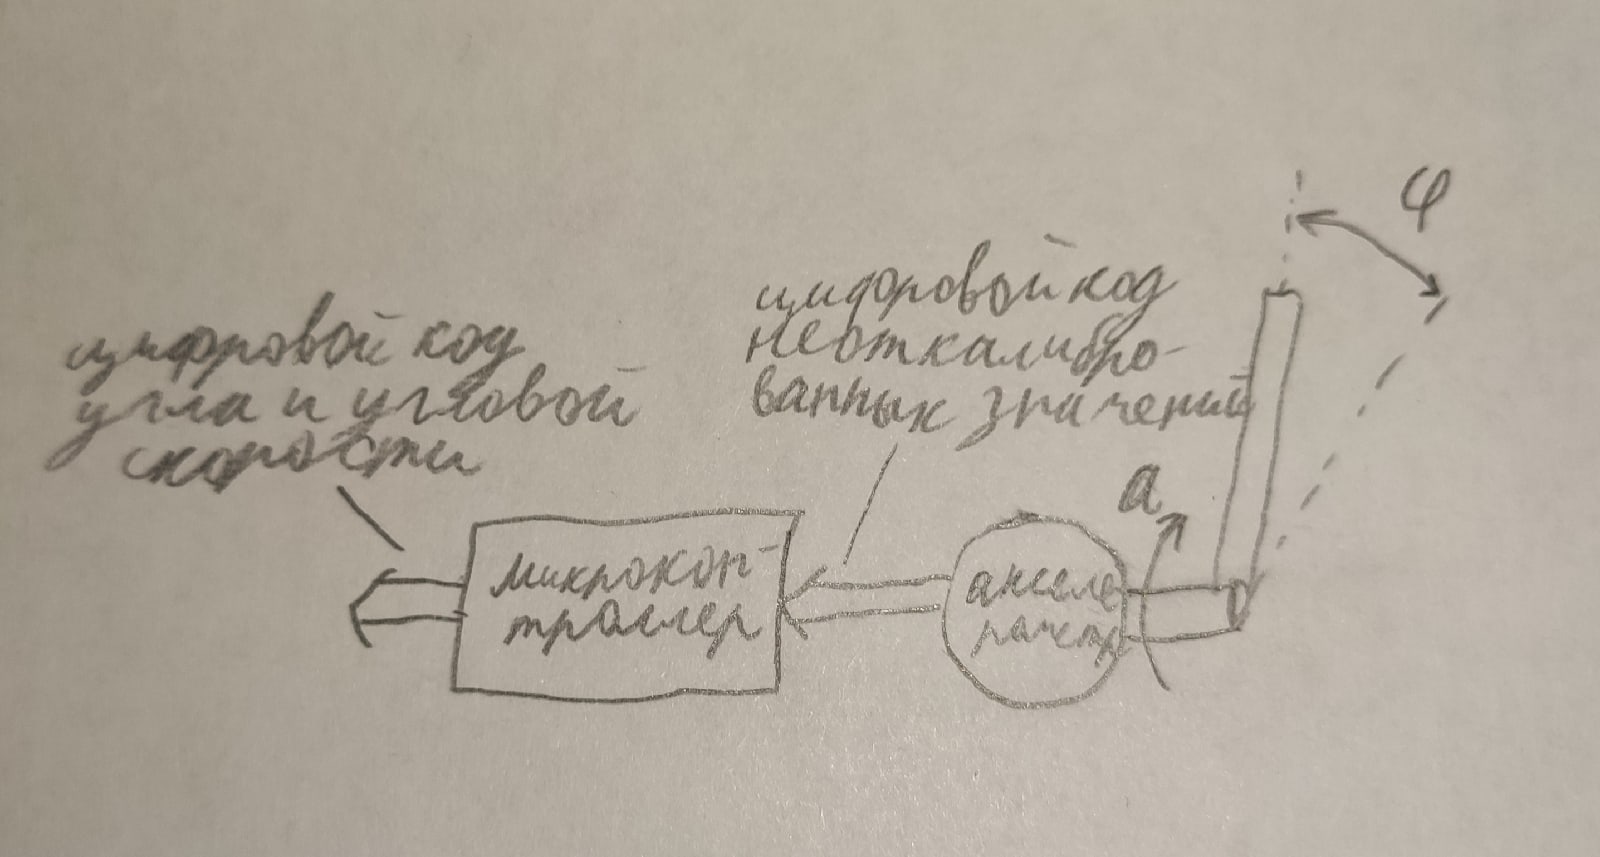 цифровой код
угла и угловой
скорости
цифровой код
неоткалибро-
ванных значений
φ
a
микрокон-
троллер
акселе
рометр